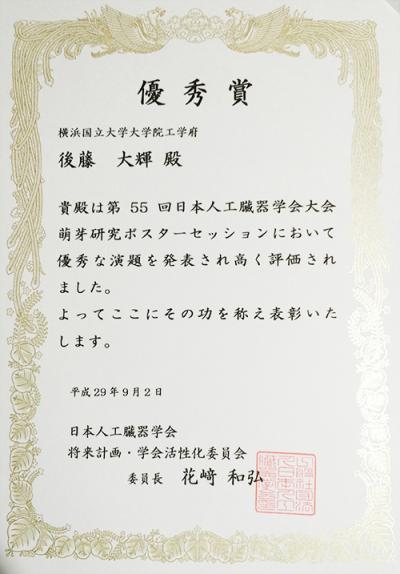 優秀賞
横浜国立大学大学院工学府
後藤　大輝 殿
貴殿は第 55 回日本人工臓器学会大会
萌芽研究ポスターセッションにおいて
優秀な演題を発表され高く評価され
ました。
よってここにその功を称え表彰いた
します。
平成29年9月2日
日本人工臓器学会
将来計画・学会活性化委員会
委員長　花﨑 和弘